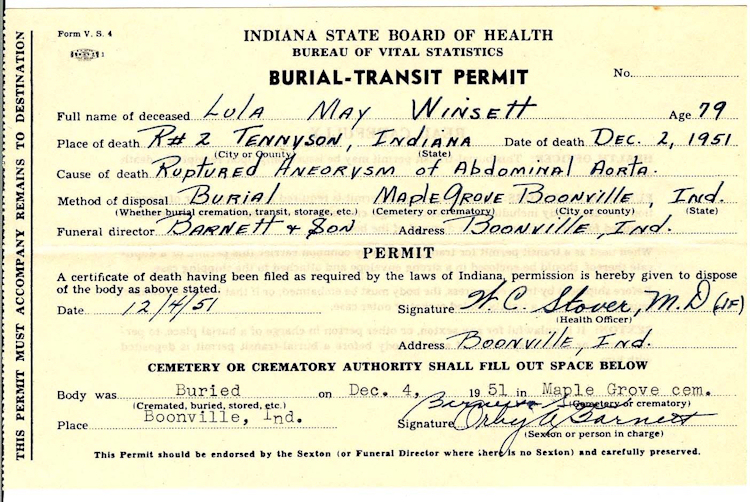 Form V. S. 4
INDIANA STATE BOARD OF HEALTH
BUREAU OF VITAL STATISTICS
BURIAL-TRANSIT PERMIT
No.
Full name of deceased Lula May Winsett Age 79
Place of death R#2 Tennyson, Indiana Date of death Dec. 2, 1951
(City or County) (State)
Cause of death Ruptured Aneorysm of Abdominal Aorta.
Method of disposal Burial Maple Grove Boonville, Ind.
(Whether burial cremation, transit, storage, etc.) (Cemetery or crematory) (City or county) (State)
Funeral director Barnett & Son Address Boonville, Ind.
PERMIT
A certificate of death having been filed as required by the laws of Indiana, permission is hereby given to dispose
of the body as above stated.
Date 12/4/51 Signature W. C. Stover, M.D (JF)
(Health Officer)
Address Boonville, Ind.
CEMETERY OR CREMATORY AUTHORITY SHALL FILL OUT SPACE BELOW
Body was Buried on Dec. 4, 1951 in Maple Grove cem.
(Cremated, buried, stored, etc.) (Cemetery or crematory)
Place Boonville, Ind. Signature Orby A Barnett
(Sexton or person in charge)
This Permit should be endorsed by the Sexton (or Funeral Director where there is no Sexton) and carefully preserved.
THIS PERMIT MUST ACCOMPANY REMAINS TO DESTINATION